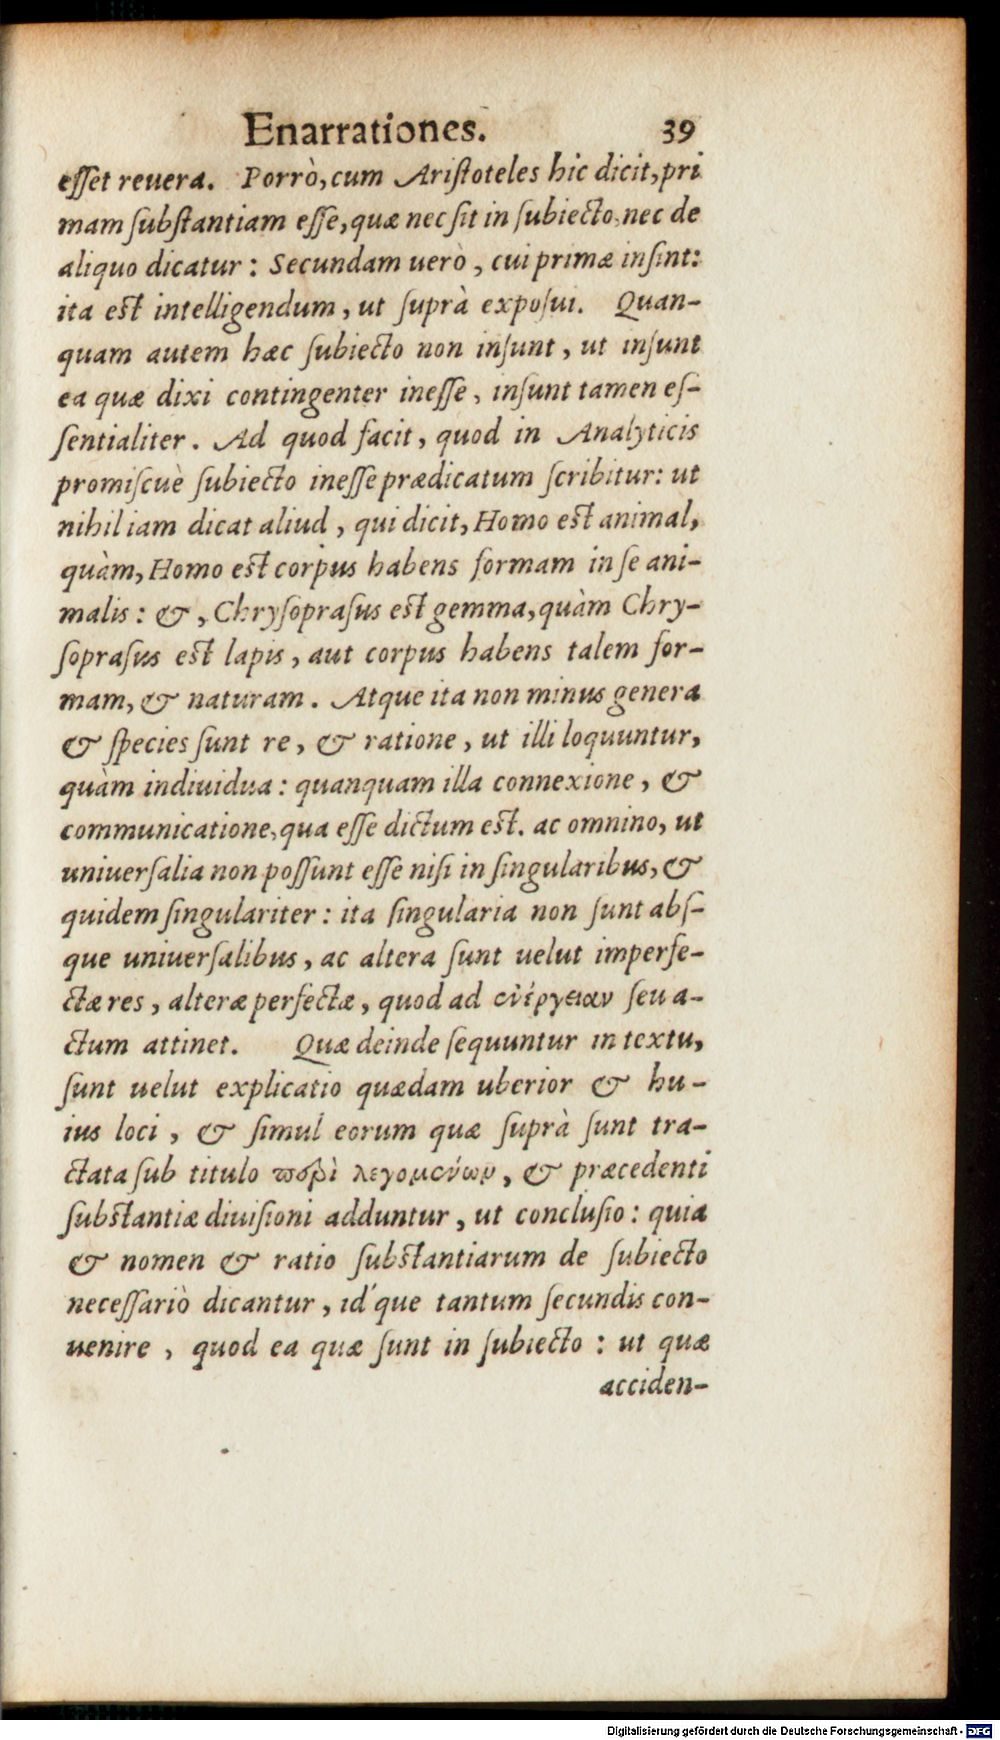 Enarrationes. 39
eſſet reuera. Porrò, cum Ariſtoteles hic dicit, pri
mam ſubſtantiam eſſe, quæ nec ſit in ſubiecto, nec de
aliquo dicatur: Secundam uerò, cui primæ inſint:
ita eſt intelligendum, ut ſuprà expoſui. Quan-
quam autem hæc ſubiecto non inſunt, ut inſunt
ea quæ dixi contingenter ineſſe, inſunt tamen eſ-
ſentialiter. Ad quod facit, quod in Analyticis
promiſcuè ſubiecto ineſſe prædicatum ſcribitur: ut
nihil iam dicat aliud, qui dicit, Homo eſt animal,
quàm, Homo eſt corpus habens formam in ſe ani-
malis: &, Chryſopraſus eſt gemma, quàm Chry-
ſopraſus eſt lapis, aut corpus habens talem for-
mam, & naturam. Atque ita non minus genera
& ſpecies ſunt re, & ratione, ut illi loquuntur,
quàm indiuidua: quanquam illa connexione, &
communicatione, qua eſſe dictum eſt. ac omnino, ut
uniuerſalia non poſſunt eſſe niſi in ſingularibus, &
quidem ſingulariter: ita ſingularia non ſunt abſ-
que uniuerſalibus, ac altera ſunt uelut imperfe-
ctæ res, alteræ perfectæ, quod ad ἐνέργειαν ſeu a-
ctum attinet. Quæ deinde ſequuntur in textu,
ſunt uelut explicatio quædam uberior & hu-
ius loci, & ſimul eorum quæ ſuprà ſunt tra-
ctata ſub titulo περὶ λεγομένων, & præcedenti
ſubſtantiæ diuiſioni adduntur, ut concluſio: quia
& nomen & ratio ſubſtantiarum de ſubiecto
neceſſariò dicantur, id´que tantum ſecundis con-
uenire, quod ea quæ ſunt in ſubiecto: ut quæ
acciden-
Digitalisierung gefördert durch die Deutsche Forschungsgemeinschaft - DFG